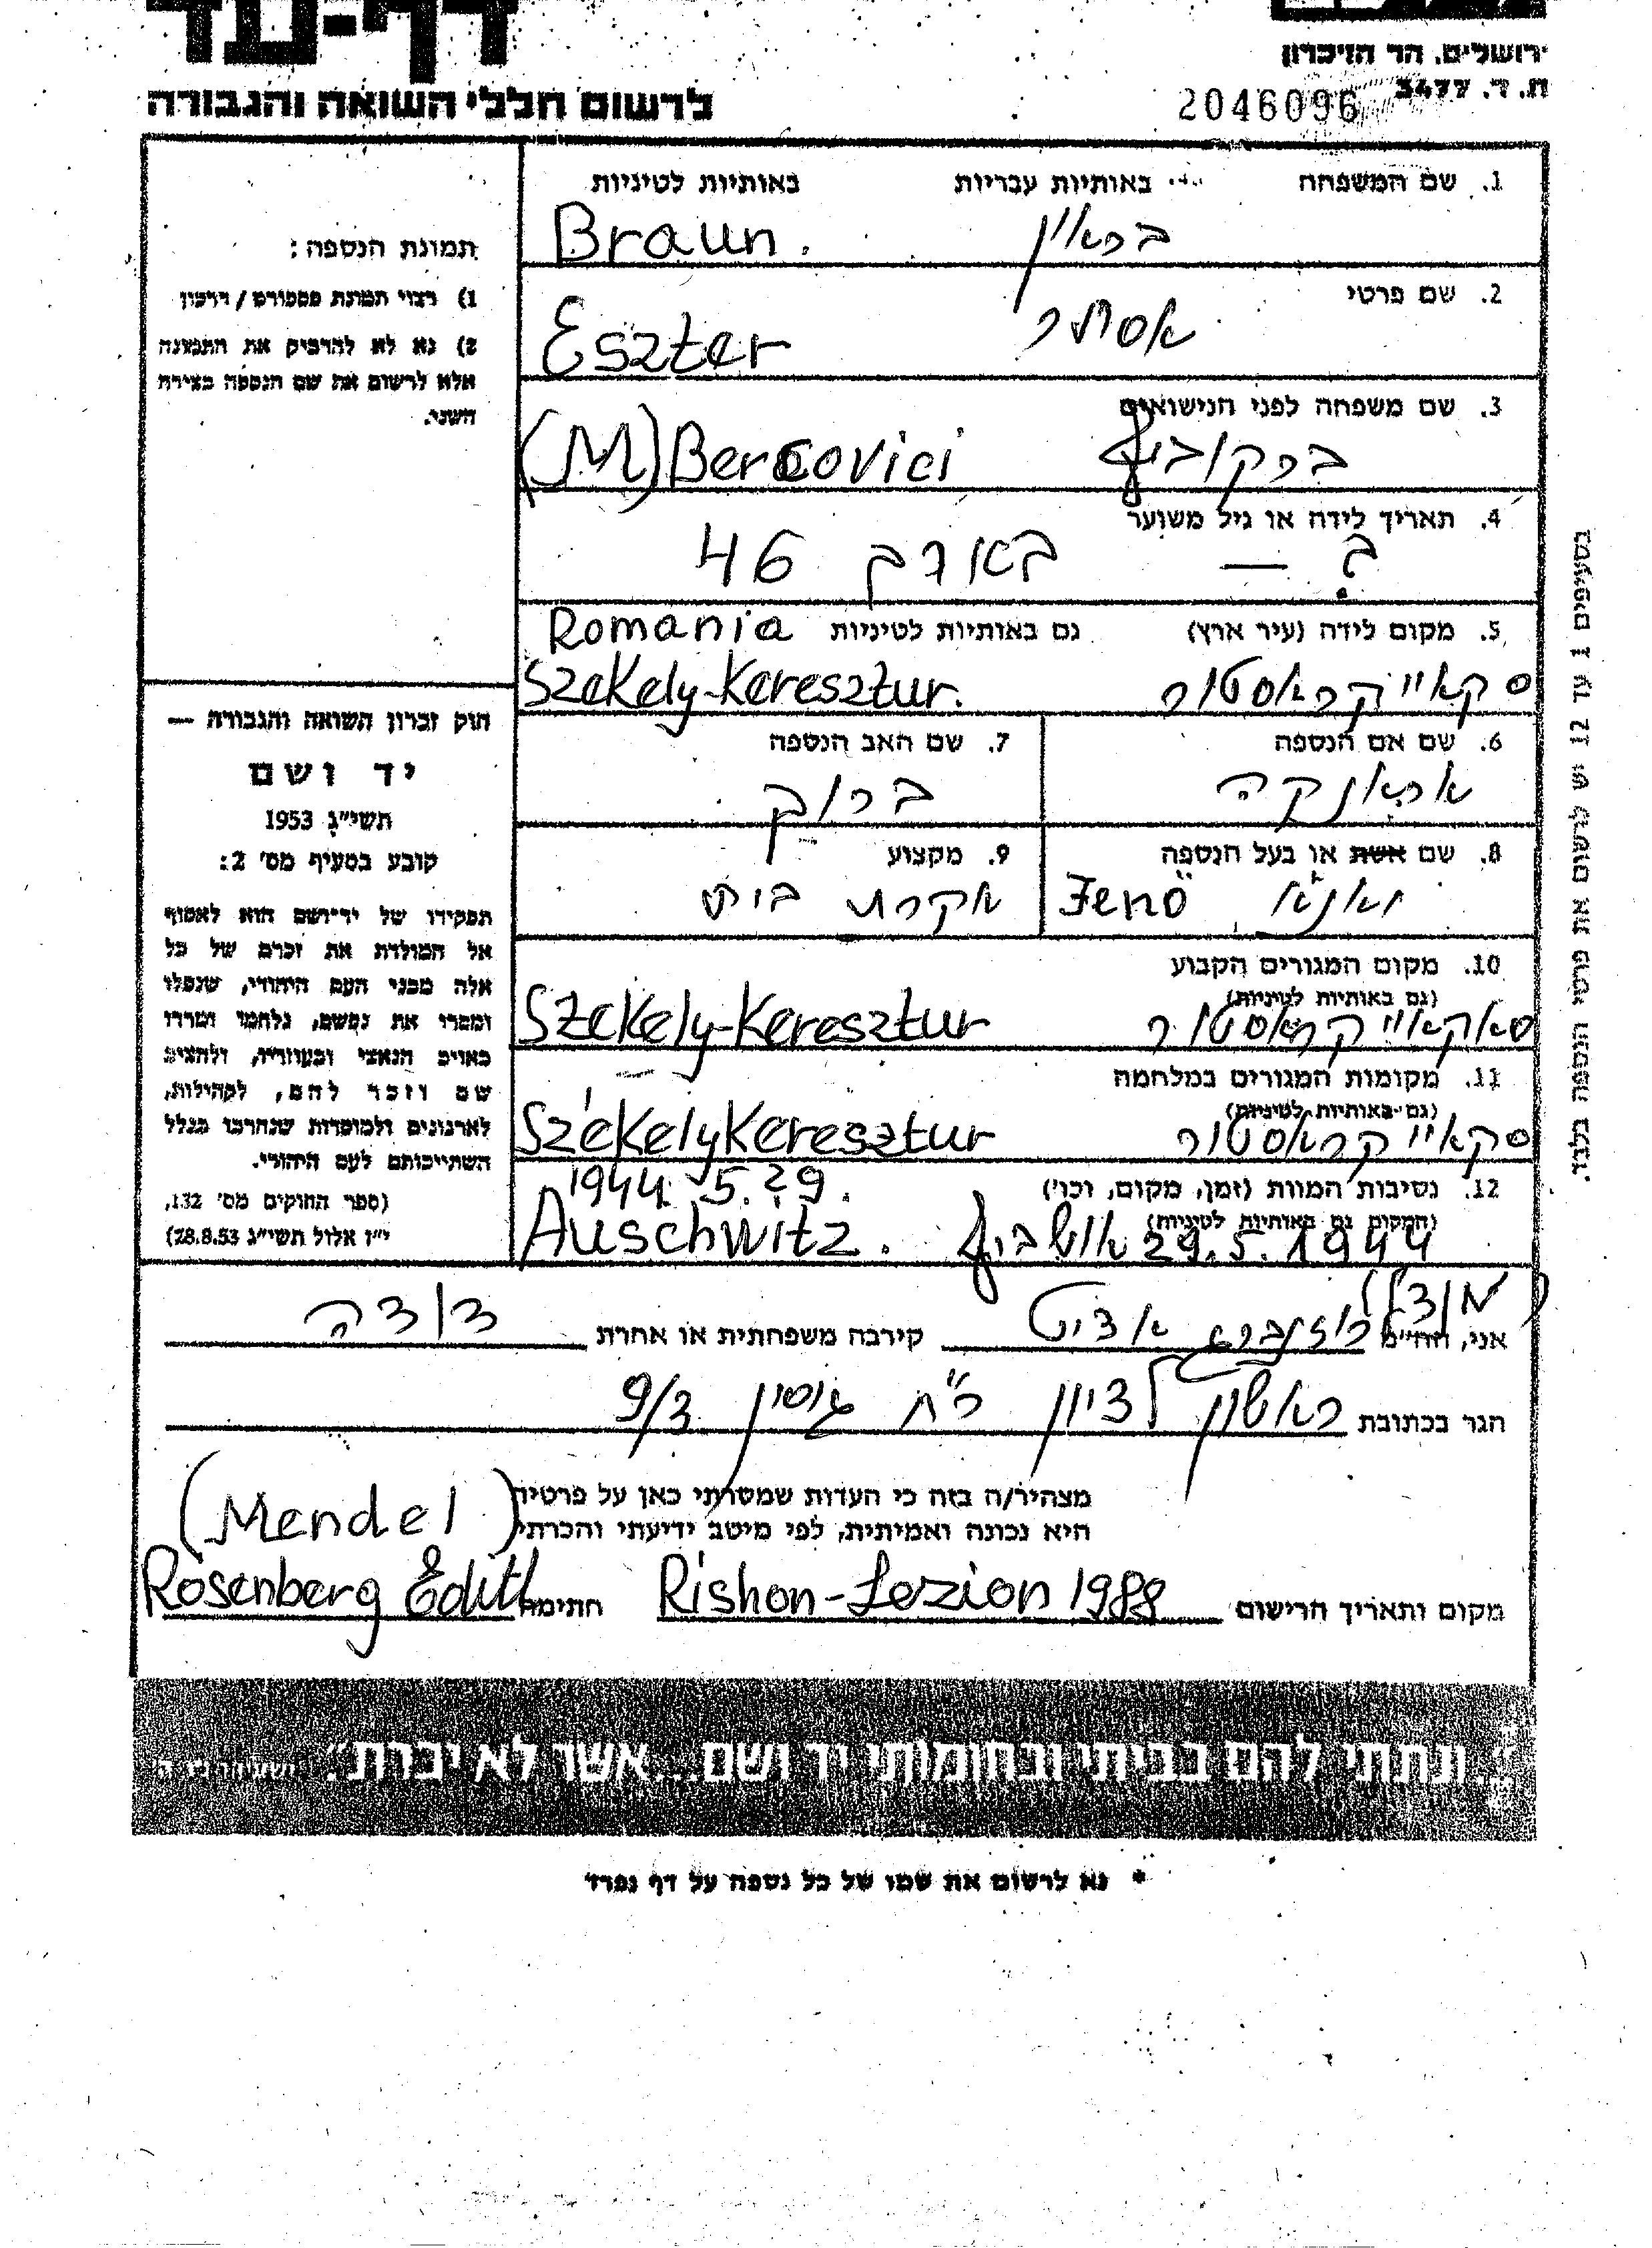 דף-עד
לרשום חללי השואה והגבורה
ירושלים, הר הזיכרון
ת. ד. 3477
2046096
1. שם המשפחה באותיות עבריות באותיות לטיניות
בראון Braun.
2. שם פרטי
אסתר Eszter
3. שם משפחה לפני הנישואים
ברקוביץ (M) Bercovici
4. תאריך לידה או גיל משוער
בערך 46
5. מקום לידה (עיר ארץ) גם באותיות לטיניות Romania
Szekely-Keresztur.
6. שם אם הנספה
אראנקה
7. שם האב הנספה
ברוך
8. שם אשת או בעל הנספה
Jenö
9. מקצוע
עקרת בית
10. מקום המגורים הקבוע
(גם באותיות לטיניות)
Szekely-Keresztur
11. מקומות המגורים במלחמה
(גם באותיות לטיניות)
SzékelyKeresztur
12. נסיבות המוות (זמן, מקום, וכו')
1944. 5. 29.
(המקום גם באותיות לטיניות)
29.5.1944 אושביץ Auschwitz.
תמונת הנספה:
1) רצוי תמונת פספורט / דרכון
2) נא לא להדביק את התמונה
אלא לרשום את שם הנספה בצידה
השני.
חוק זכרון השואה והגבורה —
יד ושם
תשי״ג 1953
קובע בסעיף מס' 2:
תפקידו של יד־ושם הוא לאסוף
אל המולדת את זכרם של כל
אלה מבני העם היהודי, שנפלו
ומסרו את נפשם, נלחמו ומרדו
באויב הנאצי ובעוזריו, ולהציב
שם וזכר להם, לקהילות,
לארגונים ולמוסדות שנחרבו בגלל
השתייכותם לעם היהודי.
(ספר החוקים מס' 132,
י״ז אלול תשי״ג 28.8.53)
בסעיפים 1 עד 12 יש לרשום את פרטי הנספה בלבד.
(מנדל)
אני, הח״מ רוזנברג אדיט קירבה משפחתית או אחרת דודה
הגר בכתובת ראשון לציון 9/3
מצהיר/ה בזה כי העדות שמסרתי כאן על פרטיה
היא נכונה ואמיתית, לפי מיטב ידיעתי והכרתי
(Mendel)
מקום ותאריך הרישום Rishon-Lezion 1988 חתימה Rosenberg Edith
ונתתי להם בביתי ובחומותי יד ושם... אשר לא יכרת
* נא לרשום את שמו של כל נספה על דף נפרד